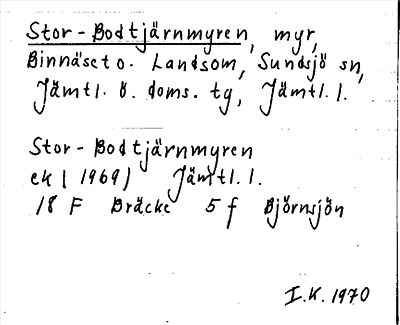 Stor-Bodtjärnmyren, myr,
Binnäset o. Landsom, Sundsjö sn,
Jämtl. ö. doms. tg, Jämtl. l.
Stor-Bodtjärnmyren
ek (1969) Jämtl. l.
18 F Bräcke 5 f Björnsjön
I.K. 1970